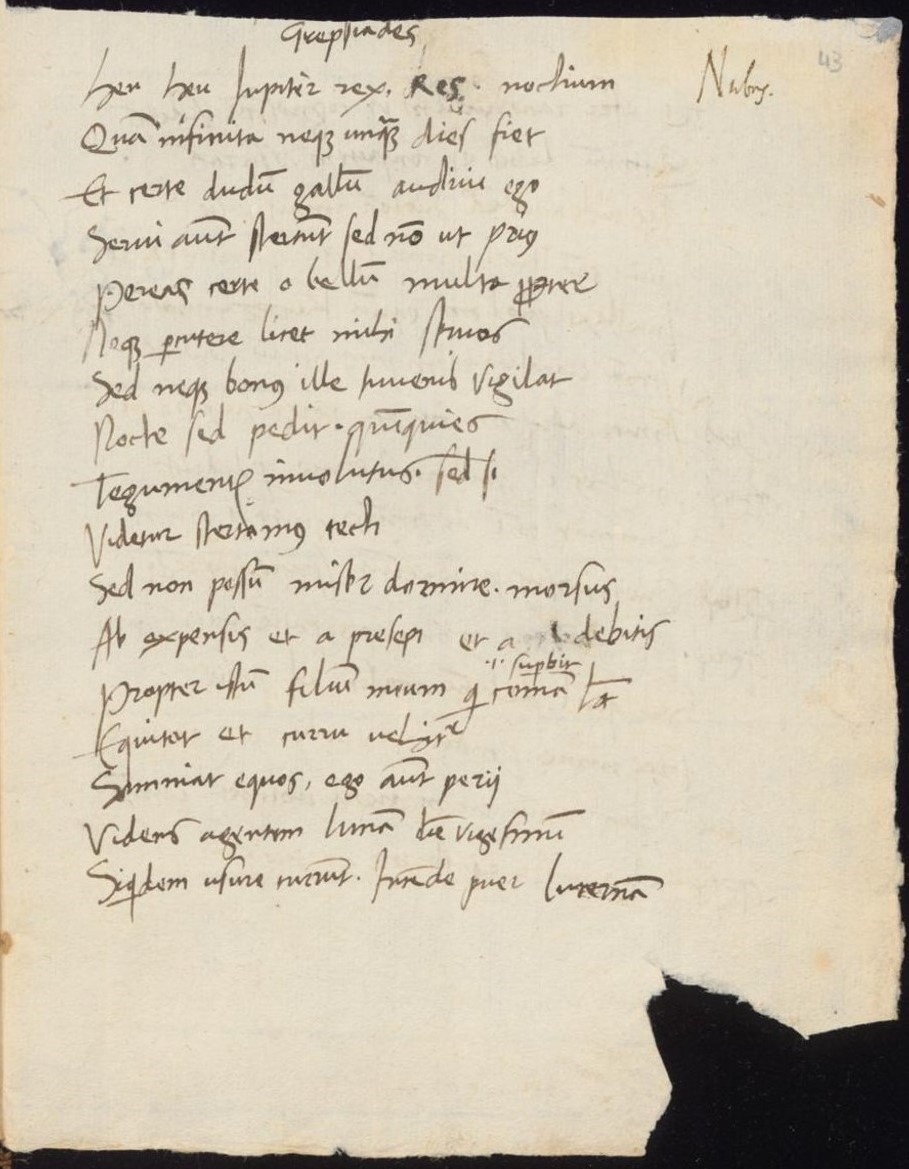 Grepsiades
43
heu heu Jupiter rex. Res. noctium Nubes.
Quā infinita neqꝫ unqꝫ dies fiet
Et certe dudū gallū audiui ego
Serui aūt stertūt sed nō ut priꝰ
Pereas certe o bellū multa ꝓpter
Neqꝫ ꝑcutere licet mihi seruos
Sed neqꝫ bonꝰ ille iuuenis vigilat
Nocte sed pedit. quīquies
Tegumentꝭ inuolutus. sed si
Videtur stertamꝰ tecti
Sed non possū miser dormire. morsus
Ab expensis et a presepi et a debitis
.i. suꝑbit
Propter istū filiū meum qi comā
Equitat et curru uehitr
Somniat equos, ego aūt perii
Videns agentem lunā vigesimū
Siqidem usure currūt. Incēde puer lucernā